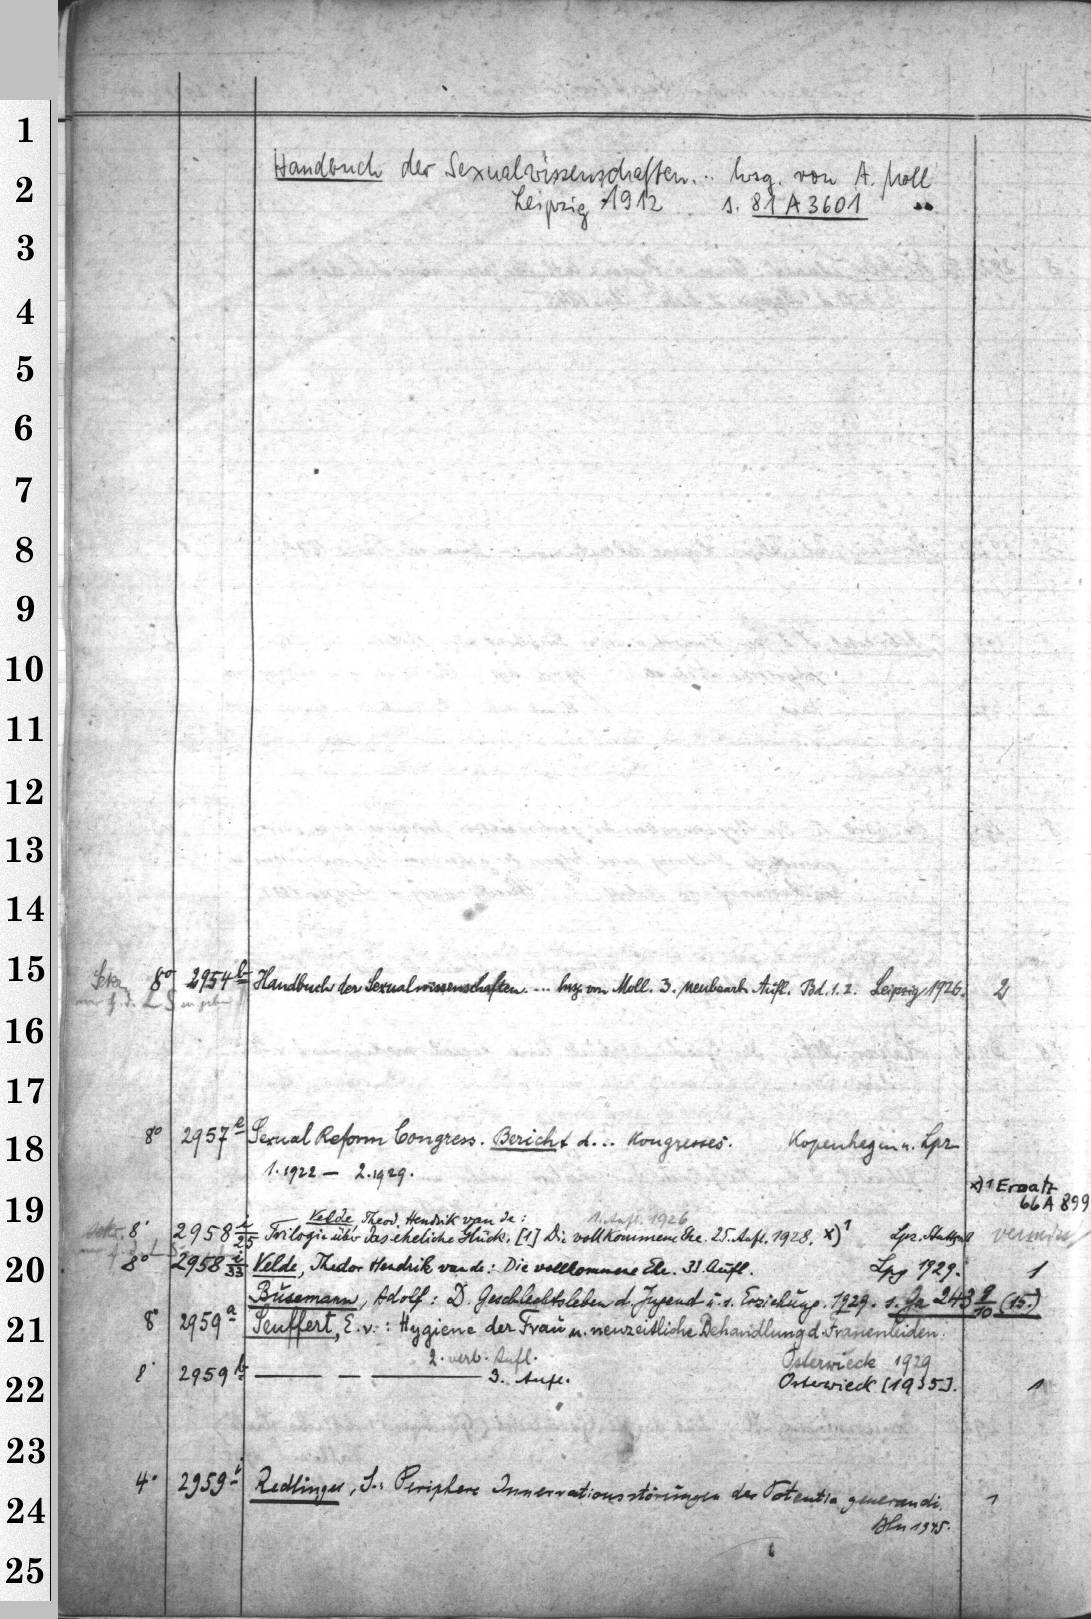 Handbuch der Sexualwissenschaften... hrsg. von A. Moll
Leipzig 1912 s. 81 A 3601
1
2
3
4
5
6
7
8
9
10
11
12
13
14
15
16
17
18
19
20
21
22
23
24
25
Sekr. 8° 2954 b Handbuch der Sexualwissenschaften.... hrsg. von Moll. 3. neubearb. Aufl. Bd. 1. 2. Leipzig 1926. 2
8° 2957 e Sexual Reform Congress. Bericht d... Kongresses. Kopenhagen u. Lpz
1. 1922 — 2. 1929.
x) 1 Ersatz
66 A 899
Velde, Theod. Hendrik van de: 1. Aufl. 1926
Sekr. 8° 2958 i/25 Trilogie über das eheliche Glück. [1] Die vollkommene Ehe. 25. Aufl. 1928. x) 1 Lpz. Stuttga
8° 2958 i/33 Velde, Thedor Hendrik van de: Die vollkommene Ehe. 33. Aufl. Lpz 1929. 1
Busemann, Adolf: D. Geschlechtsleben d. Jugend u. s. Erziehung. 1929. s. Ja 243 9/10 (15.)
8° 2959 a Seuffert, E. v.: Hygiene der Frau u. neuzeitliche Behandlung d. Frauenleiden.
2. verb. Aufl. Osterwieck 1929
8° 2959 b — — — 3. Aufl. Osterwieck [1935]. 1
4° 2959 i Redlinger, S.: Periphere Innervationsstörungen der Potentia generandi. 1
Bln 1945.